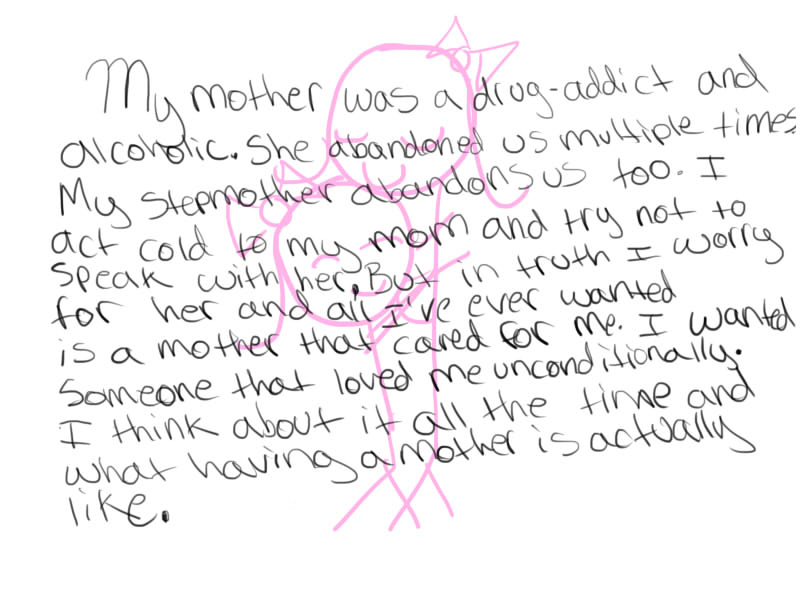 My mother was a drug-addict and
alcoholic. She abandoned us multiple times
My stepmother abandons us too. I
act cold to my mom and try not to
speak with her. But in truth I worry
for her and all I've ever wanted
is a mother that cared for me. I wanted
someone that loved me unconditionally.
I think about it all the time and
what having a mother is actually
like.